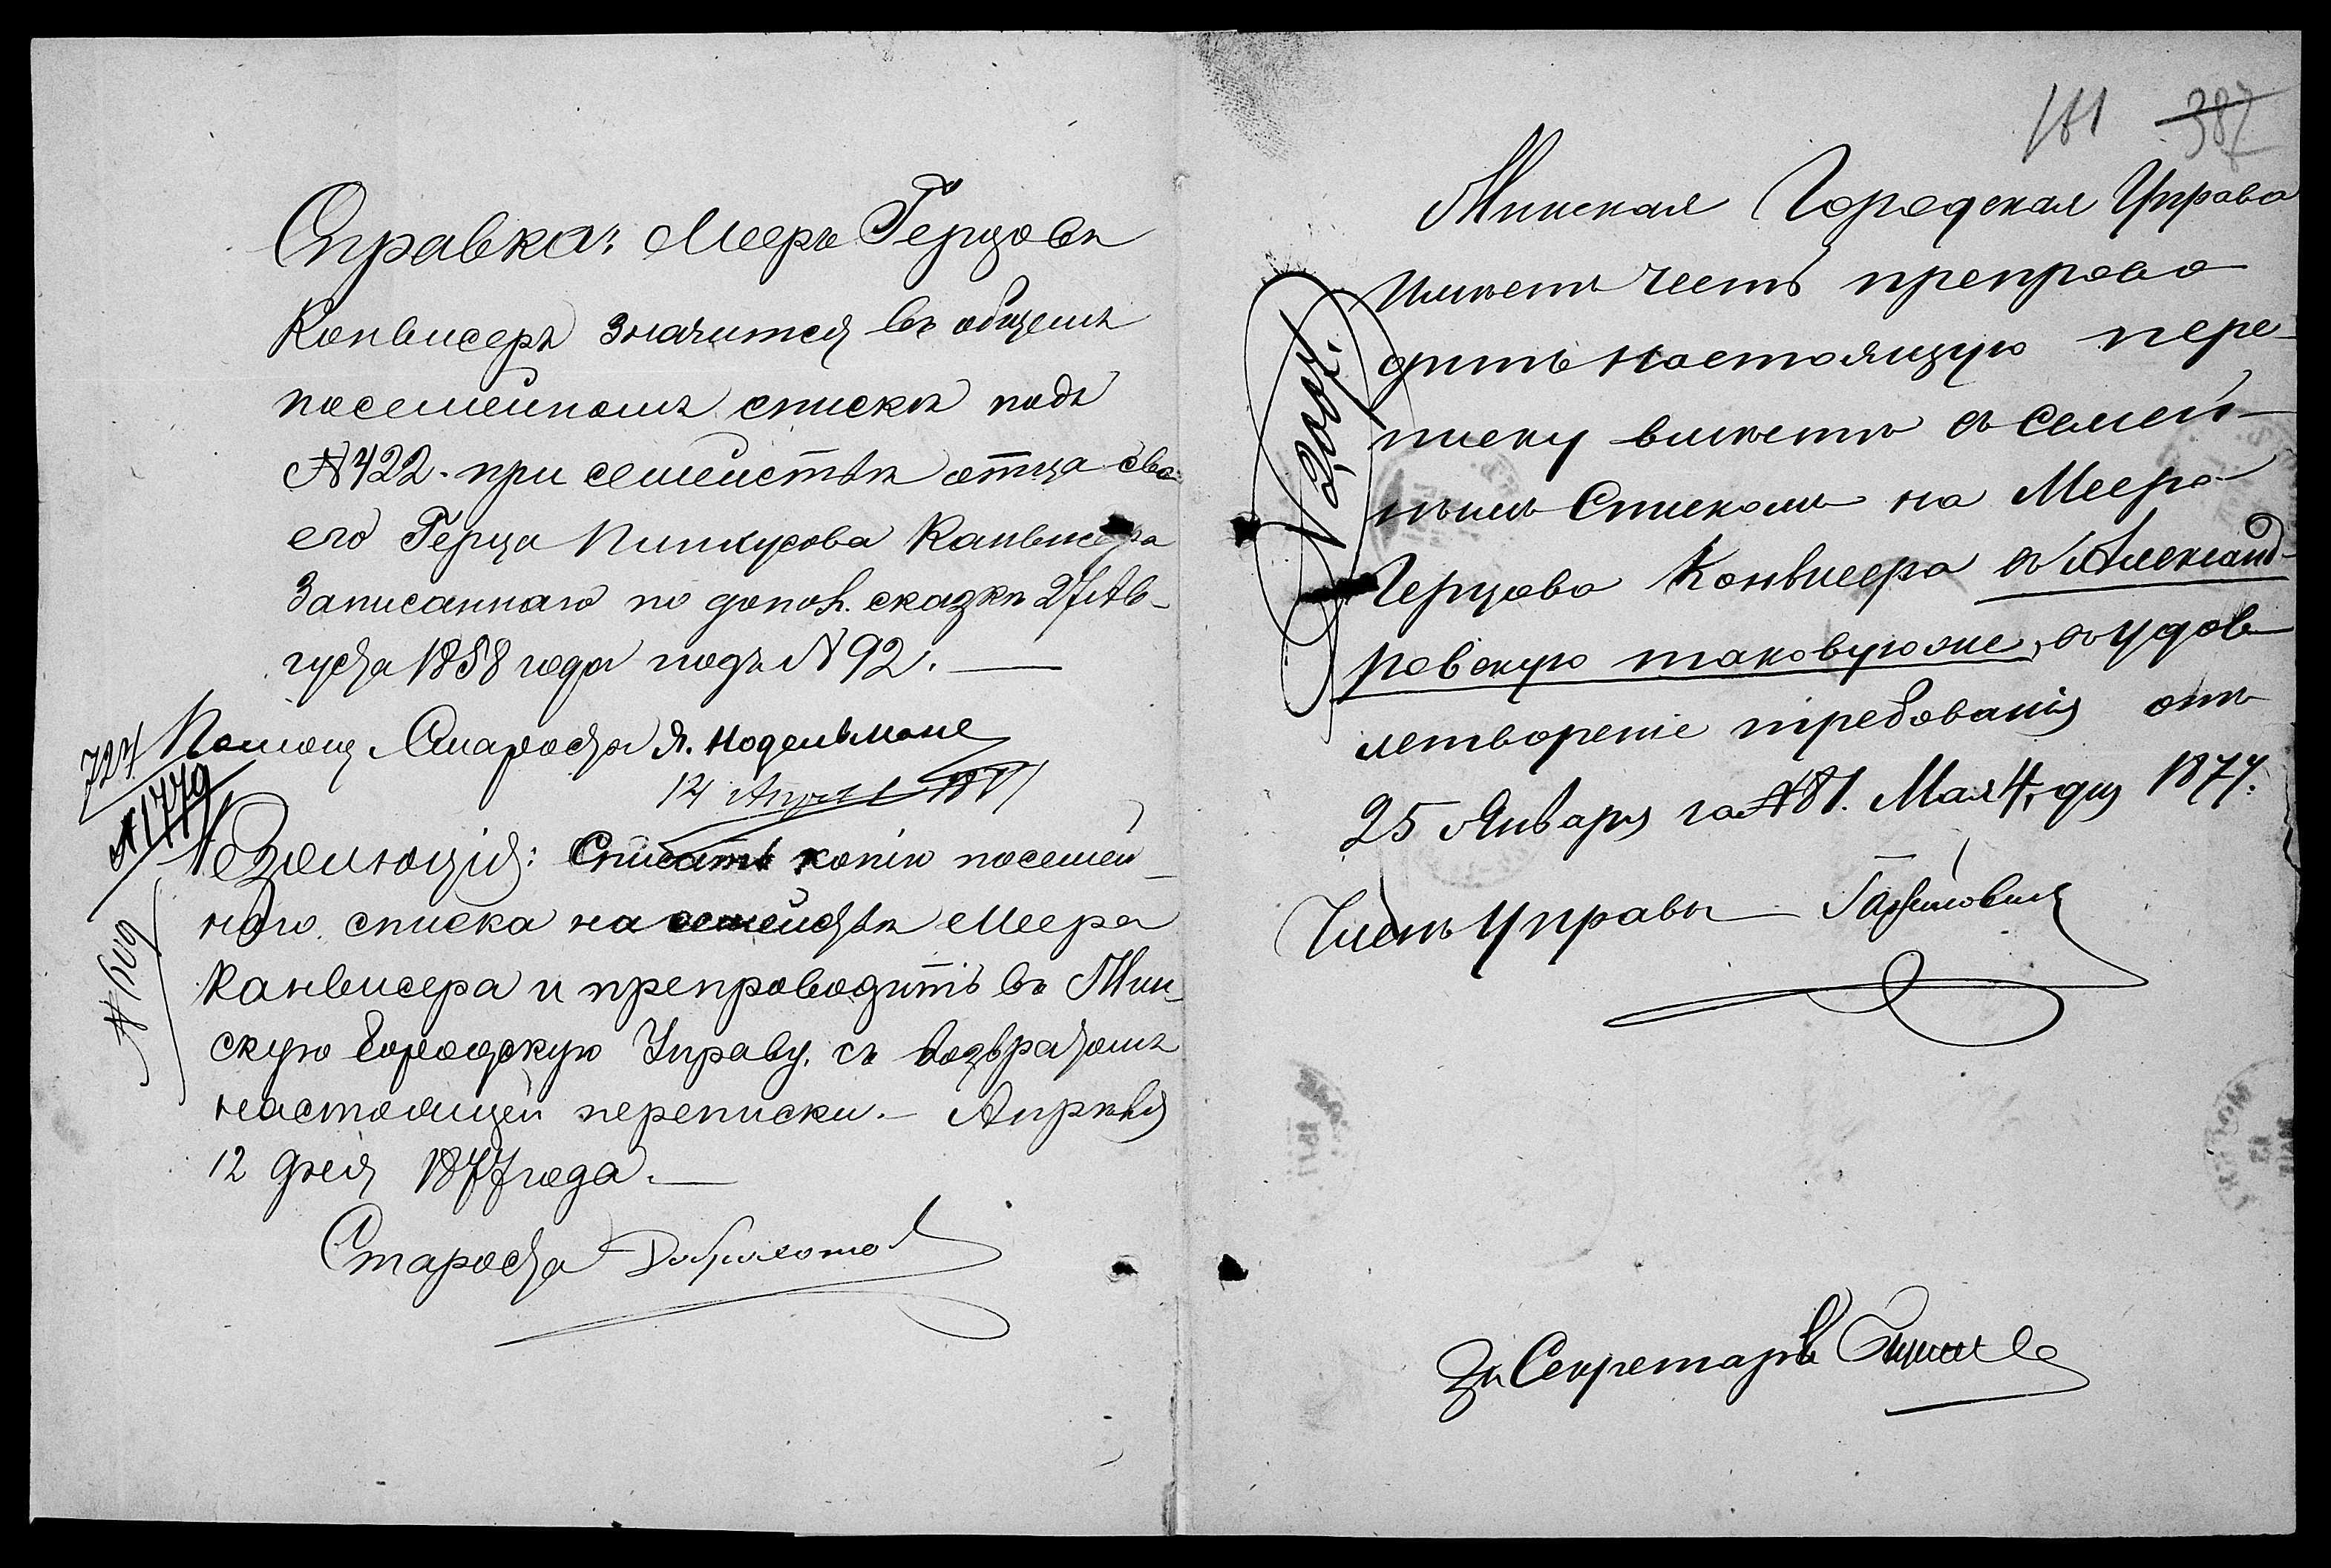 Справка: Мееръ Герцовъ
Конвисеръ значится въ общемъ
посемейномъ спискѣ подъ
№ 422. при семействѣ отца сво-
его Герца Пинкусова Канвисера
Записаннаго по допол. сказкѣ 27 Ав-
густа 1858 года подъ № 92.
Помощ. Старосты Я. Нодельмане
727
№ 1779
14 Апрѣля 1877
Резолюція: Списать копію посемей-
наго списка на семейство Меера
Канвисера и препроводить въ Мин-
скую Городскую Управу, съ возвратомъ
настоящей переписки. – Апрѣля
12 дня 1877 года.
№ 609
Староста

181 387
Минская Городская Управа
имѣетъ честь препрово
дить настоящую пере-
писку вмѣстѣ съ семей-
нымъ Спискомъ на Меера
Герцова Конвисера въ Александ-
ровскую таковую же, въ удов-
летвореніе требованія отъ
25 Января за № 81. Мая 4 дня 1877.
Членъ Управы
За Секретаря